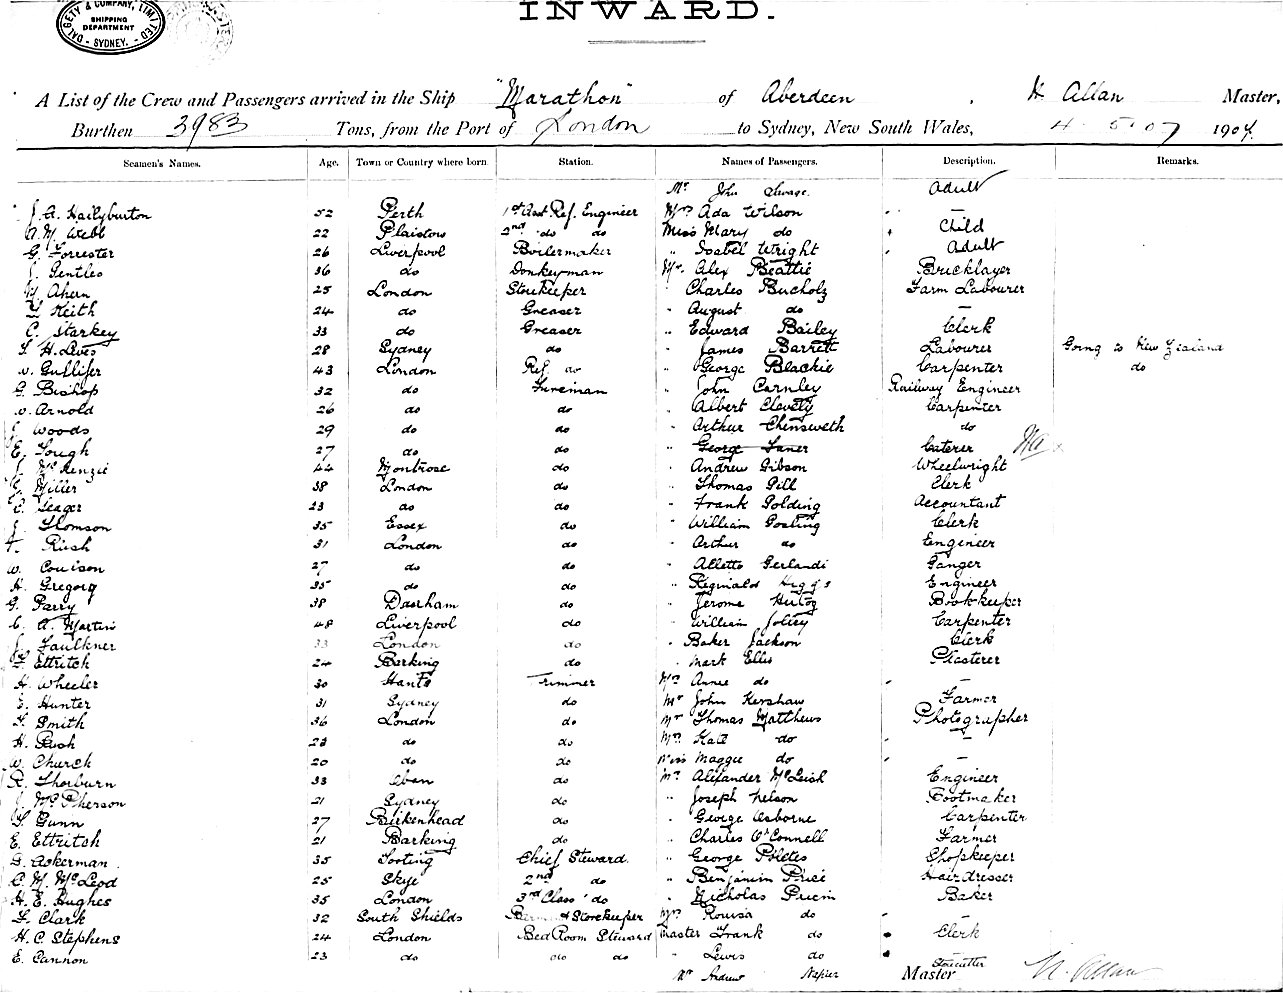 DALGETY & COMPANY, LIMITED
SHIPPING
DEPARTMENT
- SYDNEY. -
INWARD.
A List of the Crew and Passengers arrived in the Ship "Marathon" of Aberdeen, H Allan Master,
Burthen 3983 Tons, from the Port of London to Sydney, New South Wales, 4 - 5 - 07 1907.
Seamen's Names. Age. Town or Country where born Station. Names of Passengers. Description. Remarks.
Mr John Adult
J. A. Hailyburton 52 Perth 1st Asst Ref. Engineer Mrs Ada Wilson " —
A. M. Webb 22 Plaistow 2nd do do Miss Mary do " Child
G. Forrester 26 Liverpool Boilermaker " Isabel Wright " Adult
J. Gentles 36 do Donkeyman Mr. Alex Beattie Bricklayer
M. Ahern 25 London Storekeeper " Charles Bucholz Farm Labourer
Keith 24 do Greaser " August do —
C. Starkey 33 do Greaser " Edward Bailey Clerk
H. Lewis 28 Sydney do " James Barrett Labourer Going to New Zealand
W. Gullifer 43 London Ref. do " George Blackie Carpenter do
G. Bishop 32 do Fireman " John Carnley Railway Engineer
W. Arnold 26 do do " Albert Clevely Carpenter
J. Woods 29 do do " Arthur Chinsweth do
E. Tough 27 do do " George Caterer
J. McKenzie 44 Montrose do " Andrew Gibson Wheelwright
Miller 38 London do " Thomas Gill Clerk
C. Seager 23 do do " Frank Golding Accountant
J. Thomson 35 Essex do " William Gosling Clerk
Rush 31 London do " Arthur do Engineer
W. Couison 27 do do " Alletto Gerlandi Ganger
H. Gregory 35 do do " Reginald Engineer
G. Parry 38 Durham do " Jerome Bookkeeper
C. A. Martin 48 Liverpool do " William Jolley Carpenter
J. Faulkner 33 London do " Baker Jackson Clerk
Ettritch 24 Barking do " Mark Ellis Plasterer
H. Wheeler 30 Hants Trimmer Mrs Annie do " —
E. Hunter 31 Sydney do Mr John Kershaw Farmer
Smith 36 London do Mr Thomas Matthews Photographer
H. Rush 23 do do Mrs Kate do " —
W. Church 20 do do Miss Maggie do " —
R. Thorburn 33 Oban do Mr Alexander McLeish Engineer
J. McPherson 21 Sydney do " Joseph Nelson Bootmaker
Gunn 27 Birkenhead do " George Osborne Carpenter
E. Ettritch 21 Barking do " Charles O'Connell Farmer
G. Ackerman 35 Tooting Chief Steward " George Shopkeeper
C. M. McLeod 25 Skye 2nd do " Benjamin Price Hairdresser
H. E. Hughes 35 London 3rd Class do " Nicholas Baker
Clark 32 South Shields & Storekeeper Mrs Rouisa do " —
H. C. Stephens 24 London Bed Room Steward Master Frank do " Clerk
E. Cannon 23 do do do " Lewis do "
Mr Andrew Napier Stonecutter
Master H. Allan